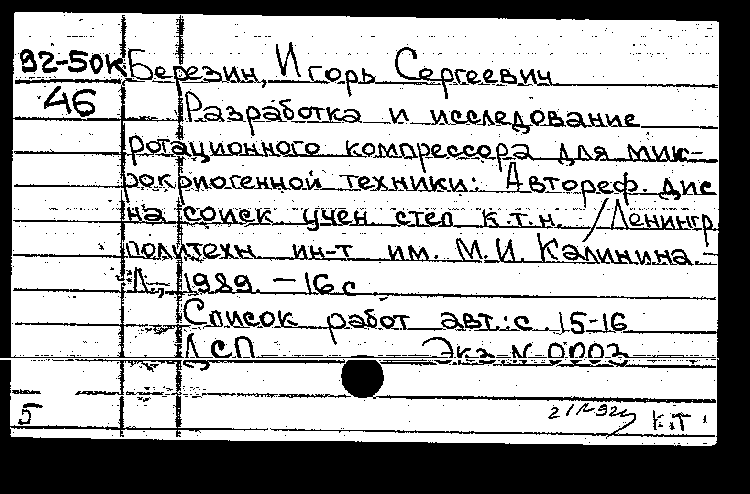 92-50к Березин, Игорь Сергеевич
46 Разработка и исследование
ротационного компрессора для мик-
рокриогенной техники: Автореф. дис
на соиск учен степ к.т.н. /Ленингр
политехн ин-т им. М.И. Калинина.-
Л., 1989. - 16 с
Список работ авт.: с. 15-16
ДСП Экз N 0003
5 КТ